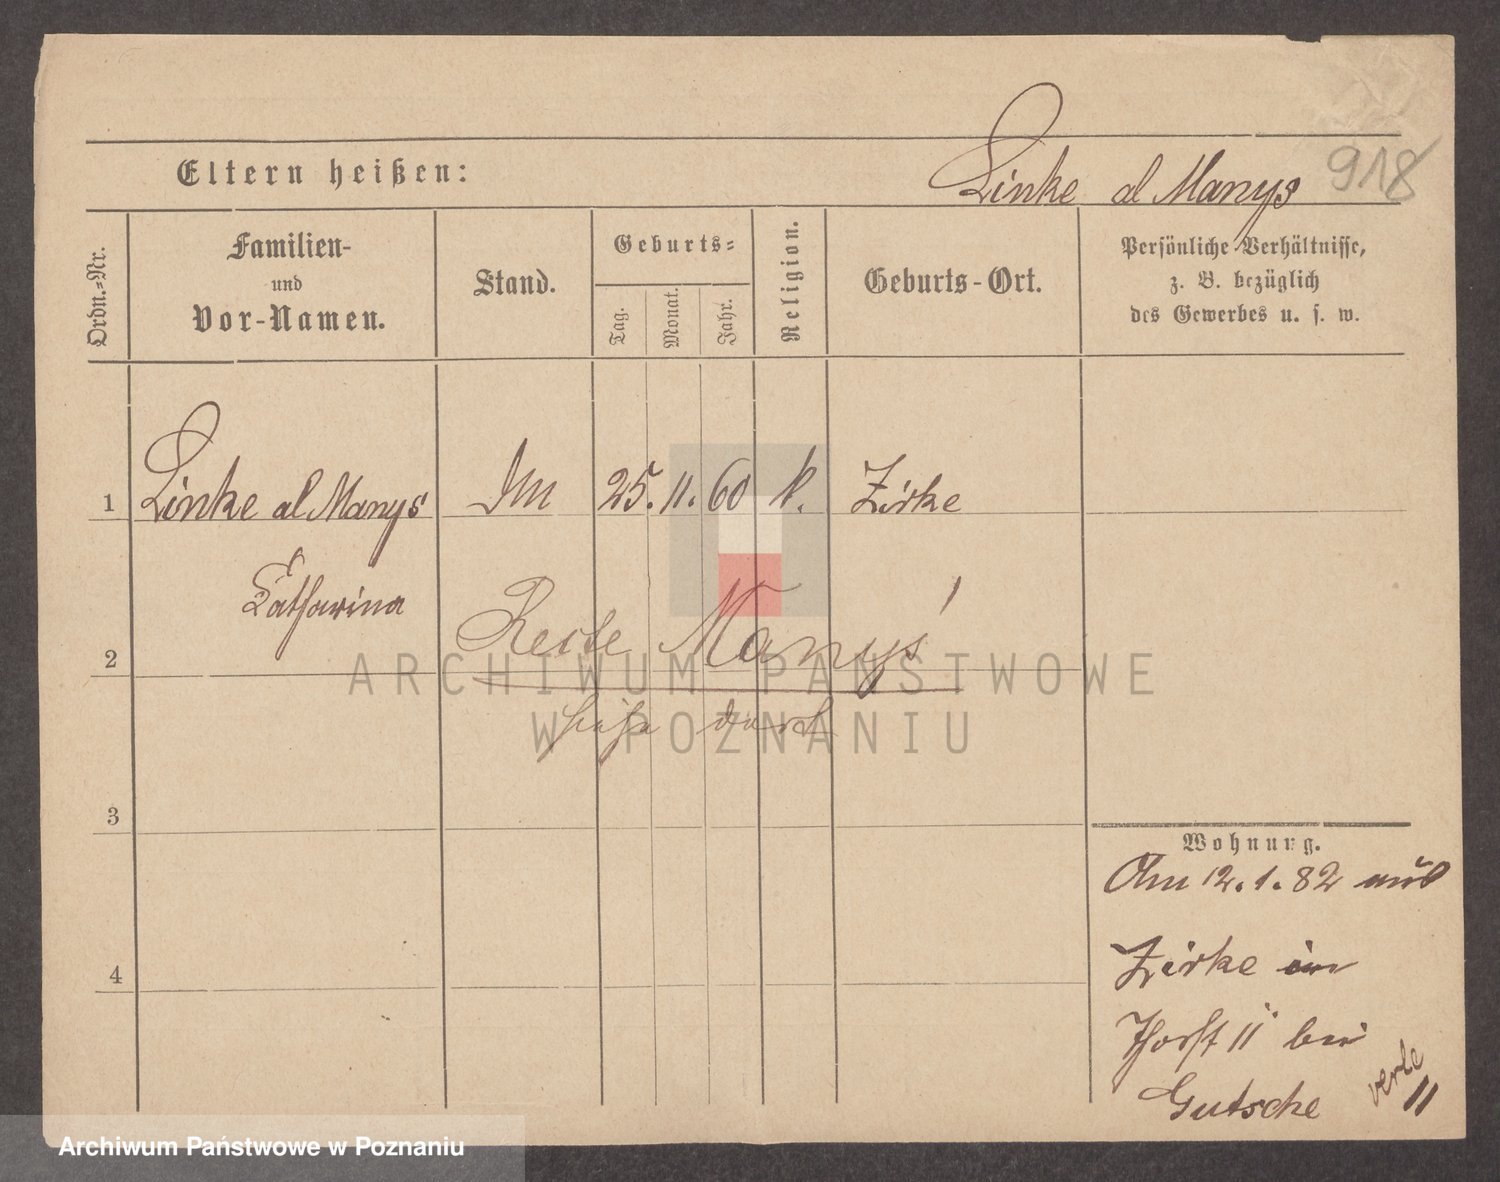 Linke al Manys
918
Eltern heißen:
Ordn.=Nr.
Familien-
und
Vor-Namen.
Stand.
Geburts=
Tag.
Monat.
Jahr.
Religion.
Geburts-Ort.
Persönliche Verhältnisse,
z. B. bezüglich
des Gewerbes u. s. w.
1 Linke al Manys 25. 11. 60 k. Zirke
Catharina
2
Recte Manys
siehe dort
3
4
Wohnung.
Am 12. 1. 82 aus
Zirke in
11 bei
Gutsche
11
ARCHIWUM PAŃSTWOWE
W POZNANIU
Archiwum Państwowe w Poznaniu